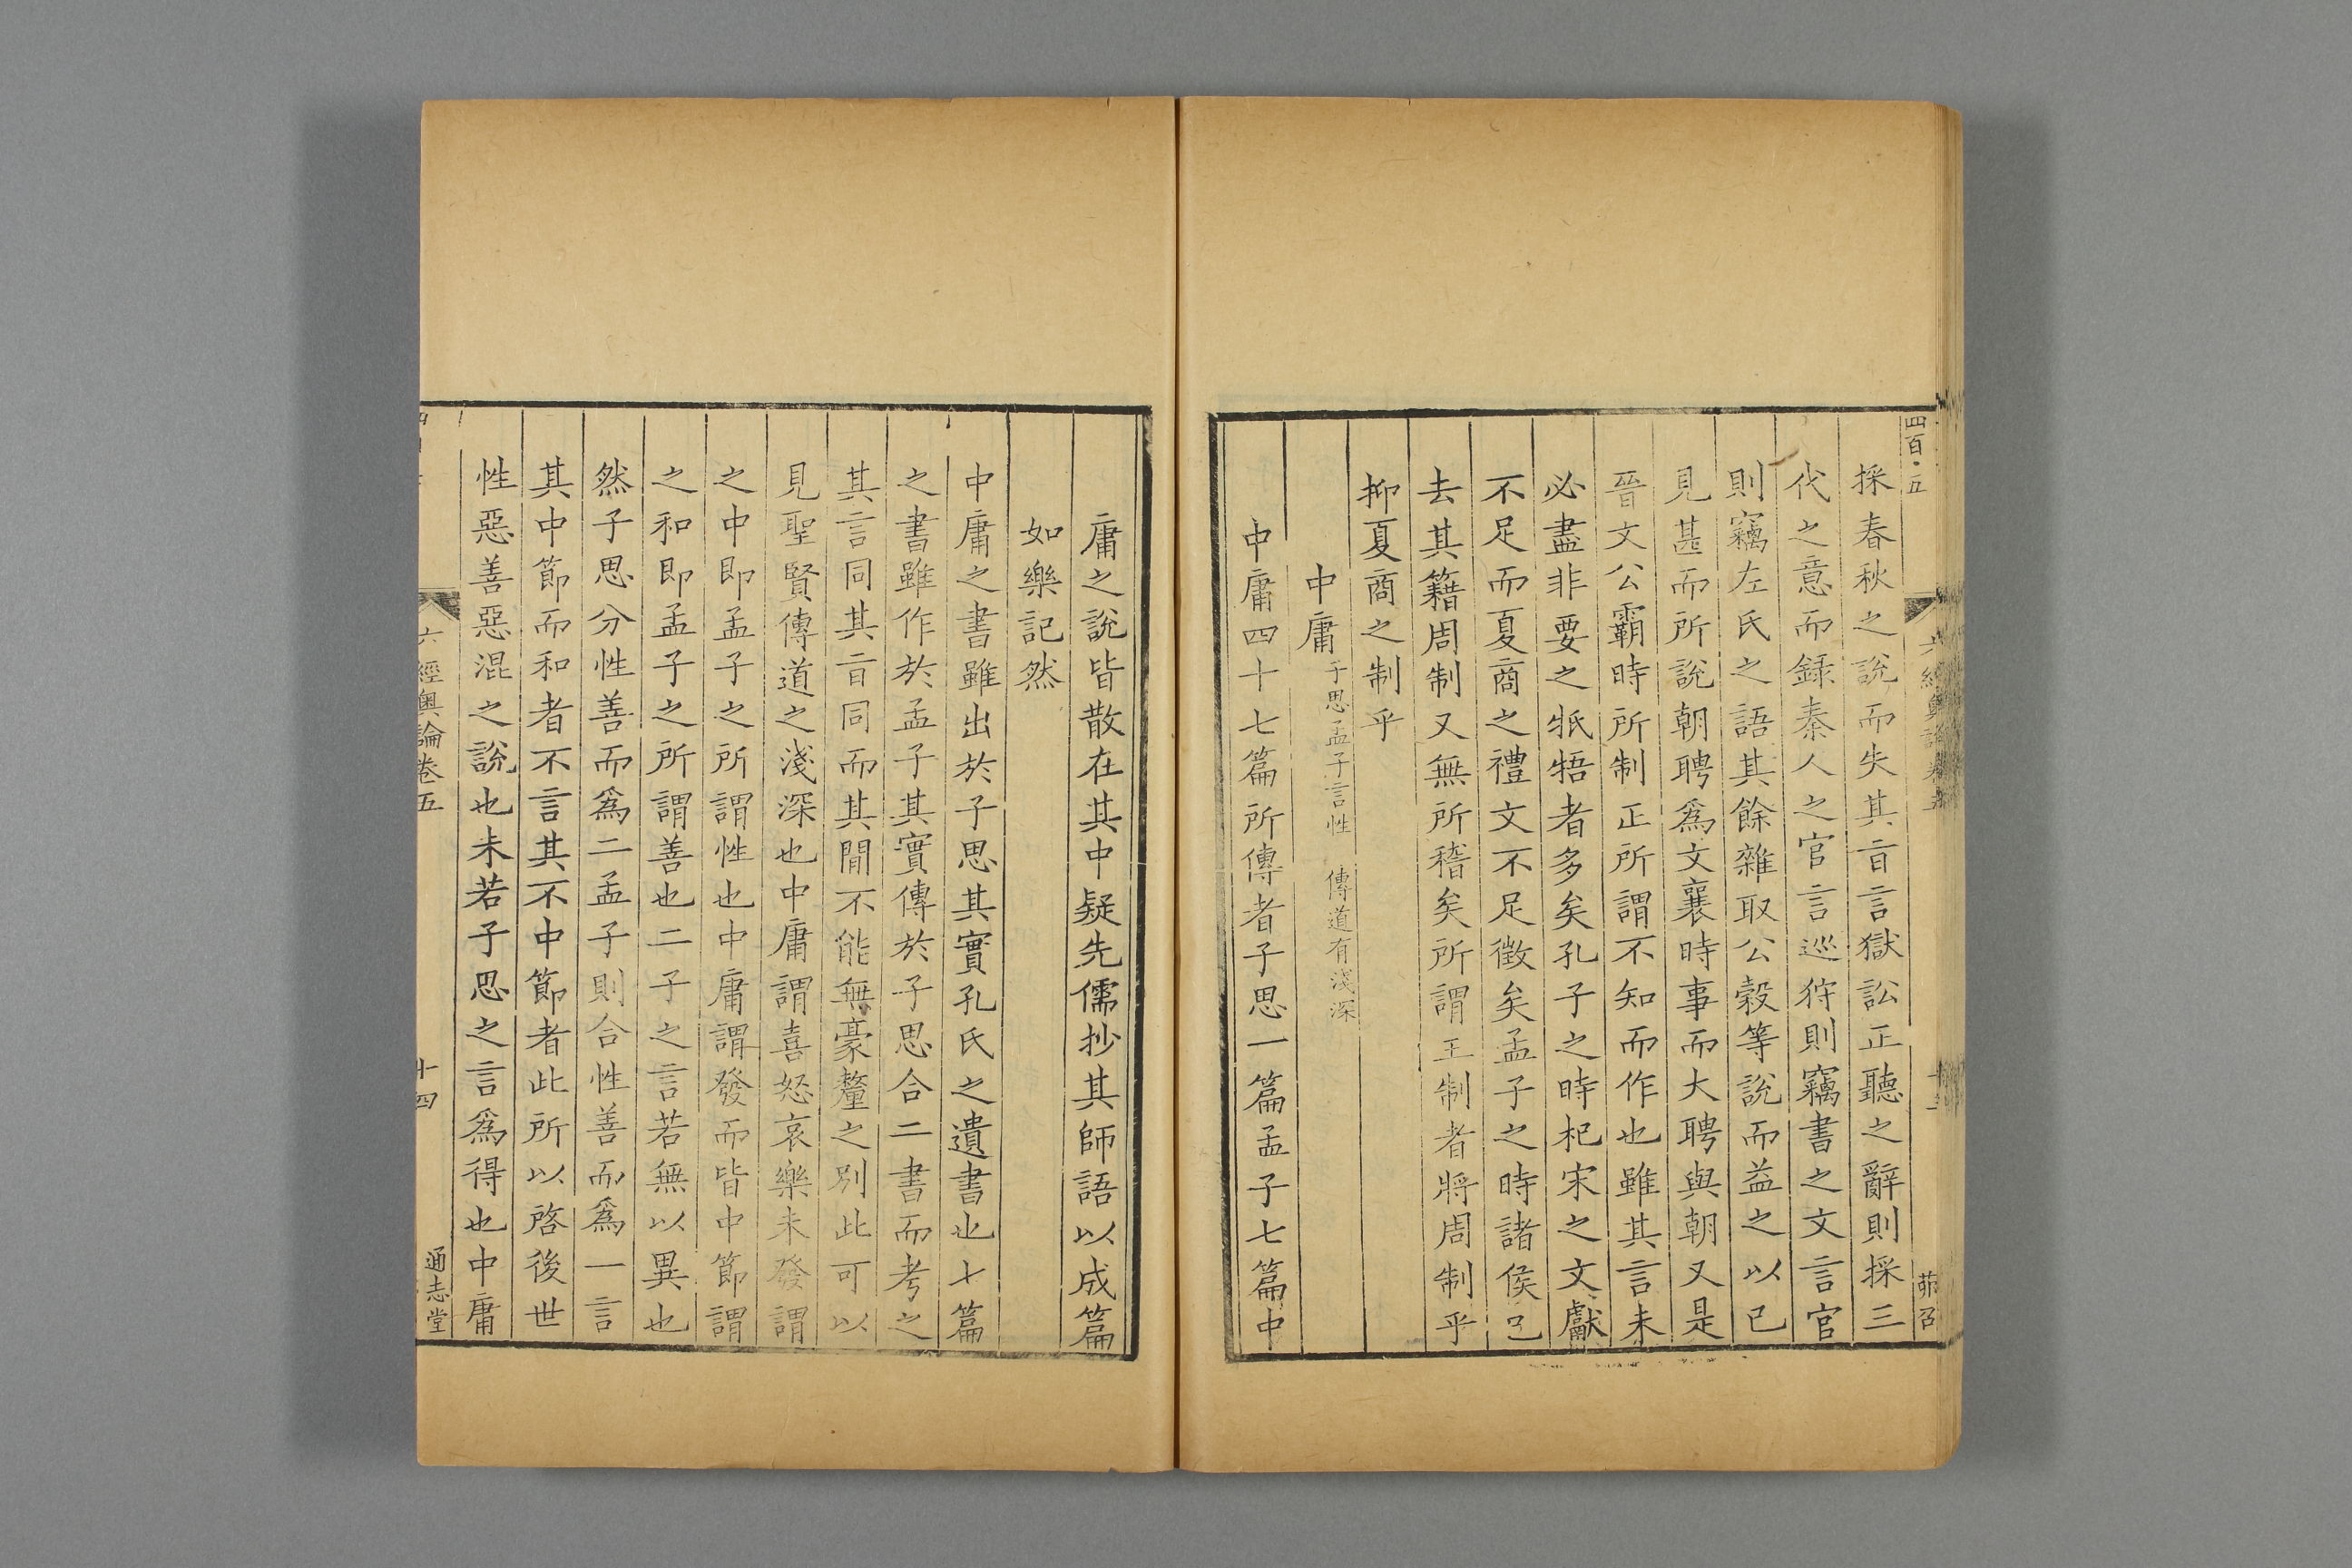 四百五
採春秋之說而失其㫖言獄訟正聽之辭則採三
代之意而録秦人之官言巡狩則竊書之文言官
則竊左氏之語其餘雜取公穀等說而益之以已
見甚而所說朝聘爲文襄時事而大聘與朝又是
晉文公霸時所制正所謂不知而作也雖其言未
必盡非要之牴牾者多矣孔子之時杞宋之文獻
不足而夏商之禮文不足徵矣孟子之時諸侯已
去其籍周制又無所稽矣所謂王制者將周制乎
抑夏商之制乎
中庸 子思孟子言性 傳道有淺深
中庸四十七篇所傳者子思一篇孟子七篇中
庸之說皆散在其中疑先儒抄其師語以成篇
如樂記然
中庸之書雖出於子思其實孔氏之遺書也七篇
之書雖作於孟子其實傳於子思合二書而考之
其言同其㫖同而其閒不能無豪釐之別此可以
見聖賢傳道之淺深也中庸謂喜怒哀樂未發謂
之中即孟子之所謂性也中庸謂發而皆中節謂
之和即孟子之所謂善也二子之言若無以異也
然子思分性善而爲二孟子則合性善而爲一言
其中節而和者不言其不中節者此所以啓後世
性惡善惡混之說也未若子思之言爲得也中庸
六經奧論卷五
十四
通志堂